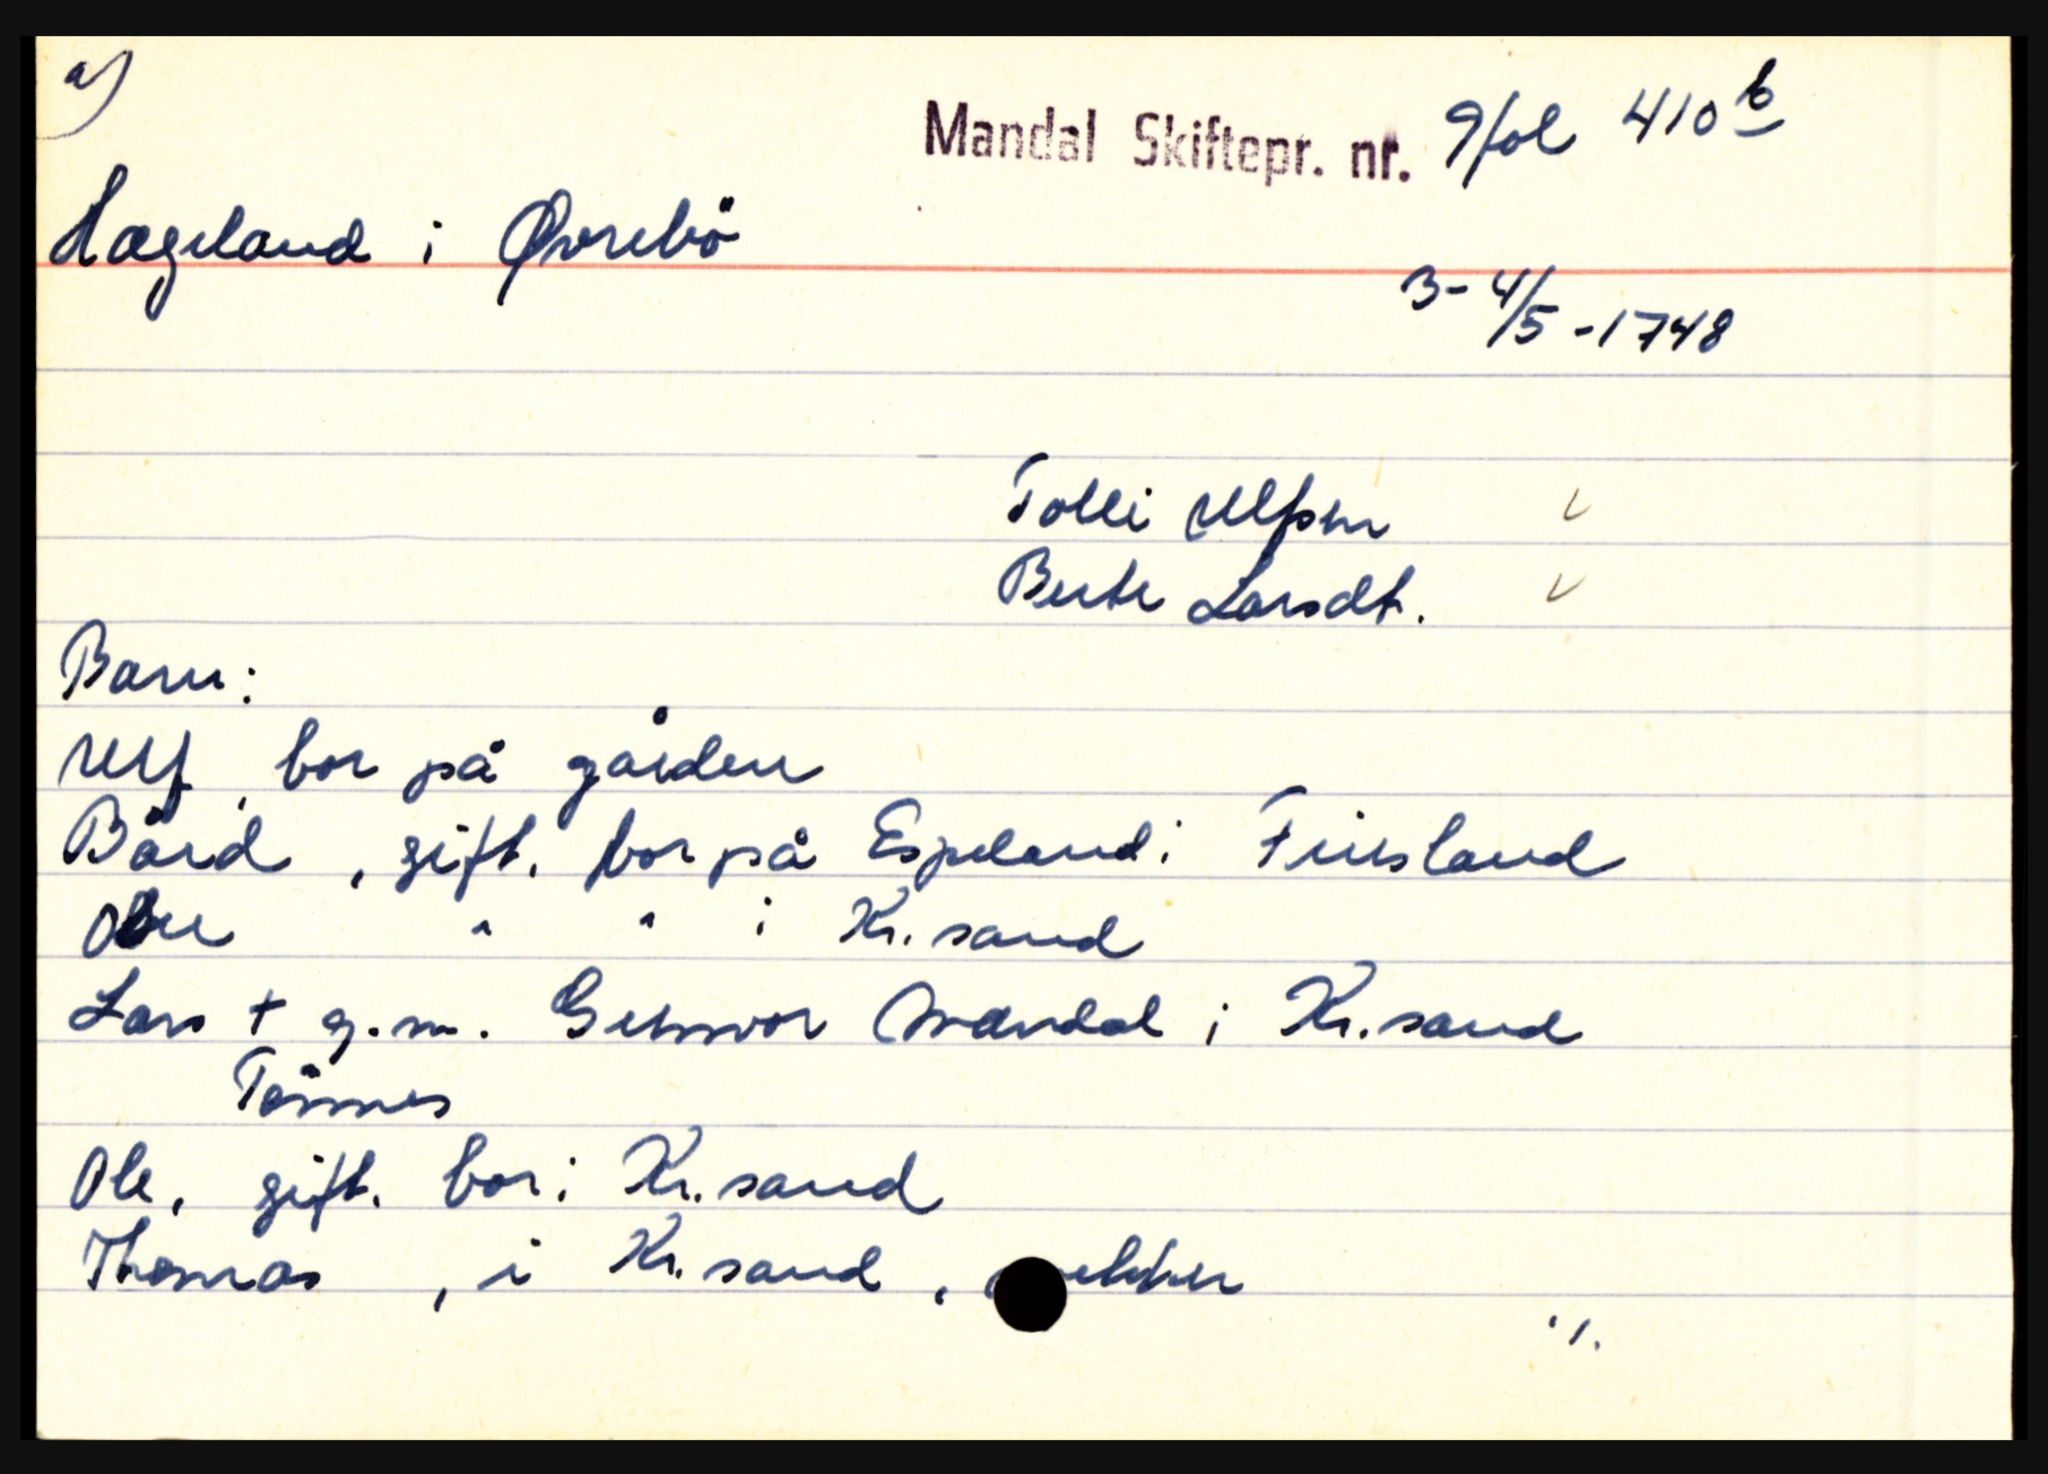 a)
Mandal Skiftepr. nr. 9 fol 410 b
Hægeland i Øvrebö
3-4/5-1748
Tolli Ulfsen
Berte Larsdt.
Barn:
Ulf, bor på gården
Bård, gift. bor på Espeland i Finsland
" " i Kr.sand
Lars + g.m. Gunvor Mandal i Kr.sand
Tönnes
Ole, gift. bor i Kr.sand
Thomas, i Kr.sand,
./.